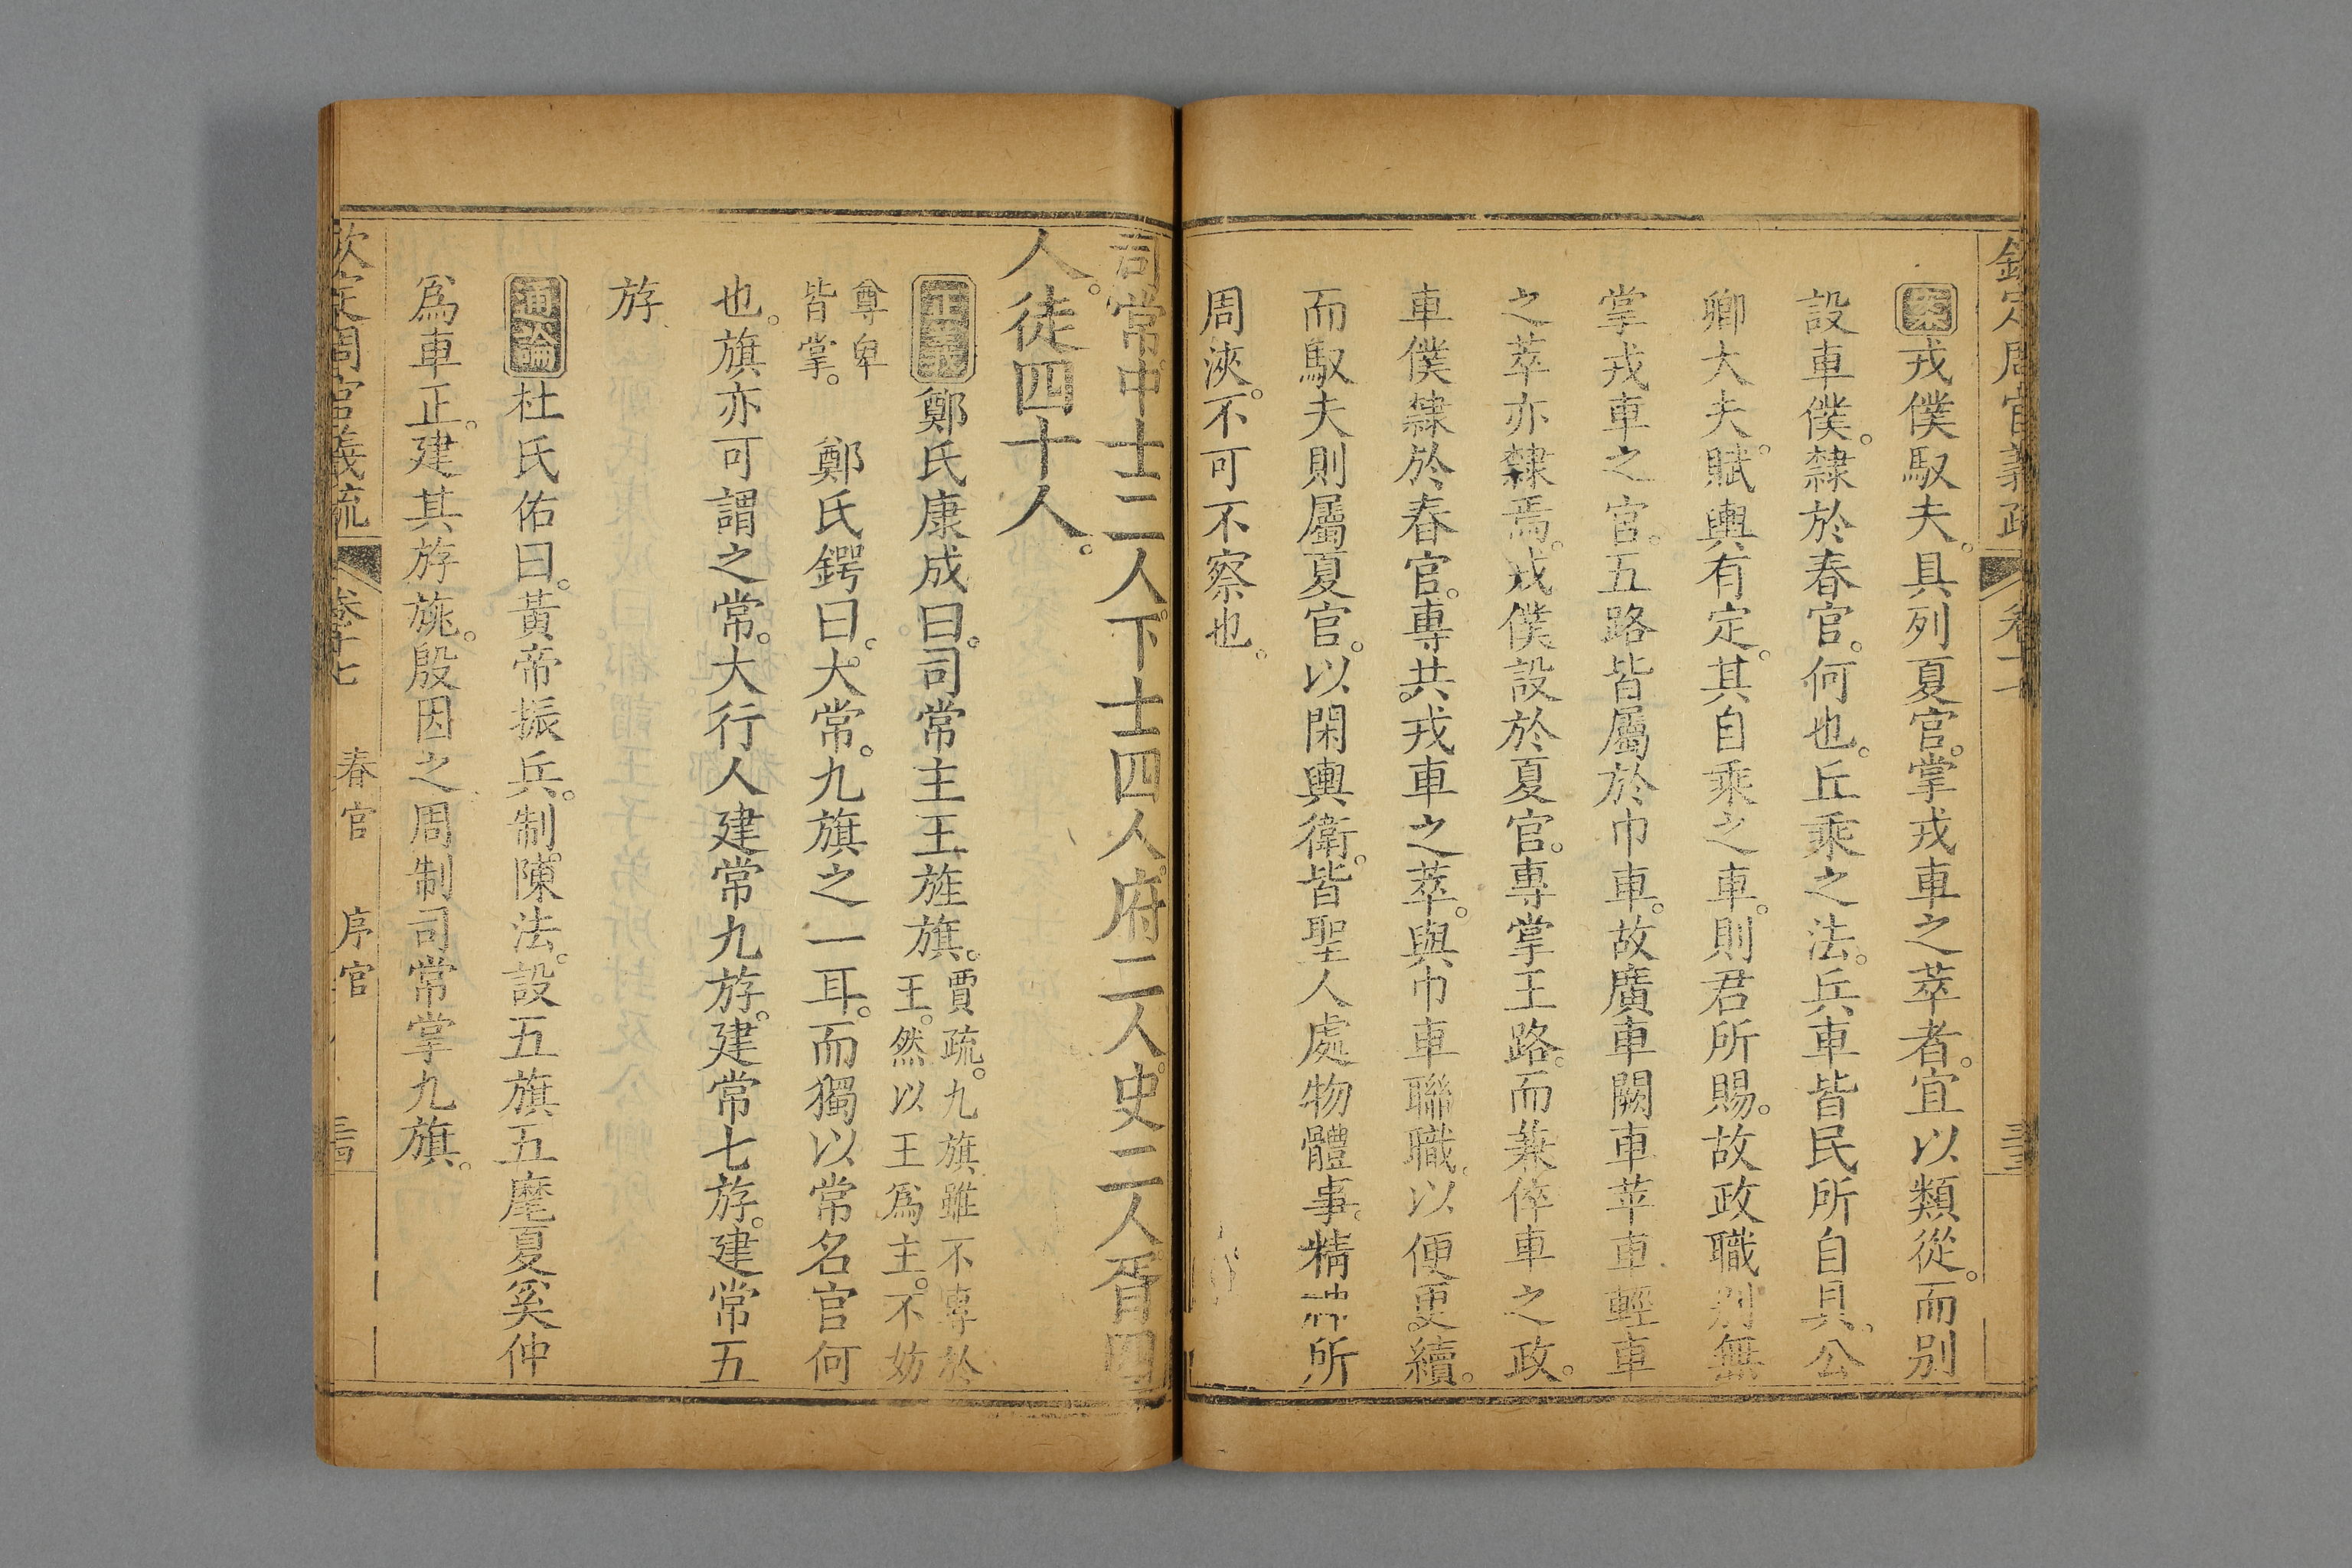 欽定周官義疏 卷十
案戎僕馭夫。具列夏官。掌戎車之萃者。宜以類從。而別
設車僕。隸於春官。何也。丘乘之法。兵車皆民所自具。公
卿大夫。賦輿有定。其自乘之車。則君所賜。故政職別無
掌戎車之官。五路皆屬於巾車。故廣車闕車苹車輕車
之萃亦隸焉。戎僕設於夏官。專掌王路。而兼倅車之政。
車僕隸於春官。專共戎車之萃。與巾車聯職。以便更續。
而馭夫則屬夏官。以閑輿衛。皆聖人處物體事。精神所
周浹。不可不察也。
司常。中士二人。下士四人。府二人。史二人。胥四
人。徒四十人。
正義鄭氏康成曰。司常主王旌旗。賈疏。九旗雖不專於王。然以王為主。不妨
尊卑皆掌。 鄭氏鍔曰。大常。九旗之一耳。而獨以常名官何
也。旗亦可謂之常。大行人建常九斿。建常七斿。建常五
斿
通論杜氏佑曰。黃帝振兵。制陳法。設五旗五麾夏奚仲
為車正。建其斿旐。殷因之周制司常掌九旗。
欽定周官義疏 卷十七 春官 序官